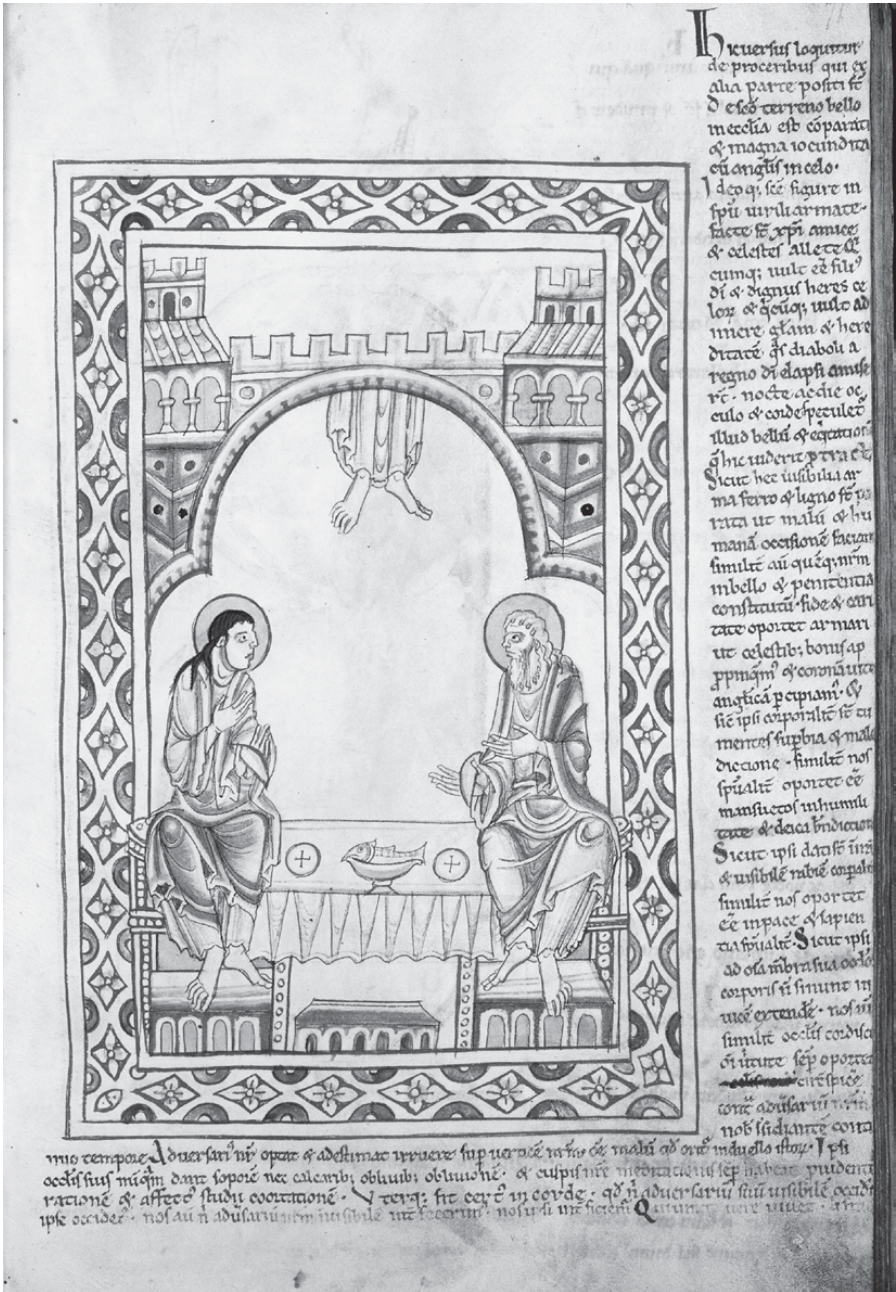 71
Hic versus loquitur
de proceribus qui ex
alia parte positi st̄
De sc̄o terreno bello
in ecclīa est cōparati
& magna iocundita
cū anglis in celo.
Ideoq; sc̄e figure in
spū virili armate.
facte st̄ xp̄i amice
& celestes
cumq; vult eē fili⁹
dī & dignus heres ce
lor̄ & q̄cūq; vult ad
glām & here
ditatē. q̄s diaboli a
regno dī elapsi amise
rt̄. nocte ac die oc
culo & corde speculet̄
illud bellū & eq̄tatior̄
q̄ hic viderit
Sicut hec visibilia ar
ma ferro & ligno st̄ pa
rata ut malū & hu
manā occisionē faciant
similit̄ aū quēq; nr̄m
in bello & penitentia
constitutū. fide & cari
tate oportet armari
ut celestib; bonis ap
& coronā vite
anglicā percipiam⁹. &
sic̄ ipsi corporalit̄ st̄ tu
mentes supbia & male
dictione. similit̄ nos
spūalit̄ oportet eē
mansuetos in humili
tate & deica bn̄diction
Sicut ipsi dati st̄
& visibilē rabiē corpalit̄
similit̄ nos oportet
eē in pace & sapien
tia spūalit̄. Sicut ipsi
ad osa mb̄ra sua occlos
corporis n̄ sinunt in
vicē extende. nos
similit̄ occlis cordis
virtute sep̄ oportet
circūspice
cont̄ adv̄sariū
nob̄ īsidiante conti
nuo tempore Adversari⁹ nr̄ optat & adestimat irruere sup verticē nr̄m. eē malū qd̄ orit̄ in duello istor̄. Ipsi
occlis suis dant soporē nec calcarib; oblivib; oblivionē. & cuspis meditationis sep̄ habent prudenti
rationē & affectū studii coortationē. Vterq; fit cert̄ in corde. qd̄ n̄ adversariū suū visibilē occidit
ipse occidet̄. nos aū n̄ adv̄sariū nrm̄ invisibilē